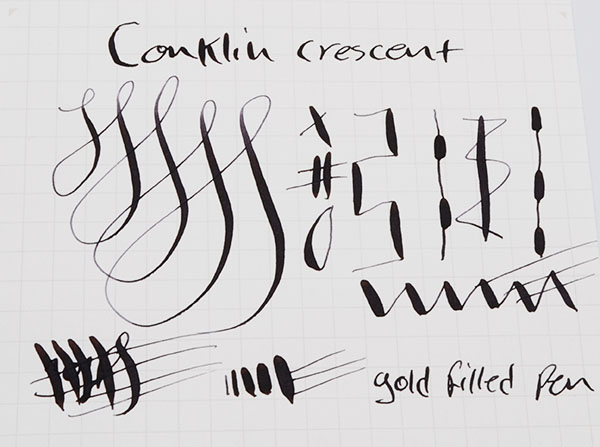 Conklin crescent
gold filled pen